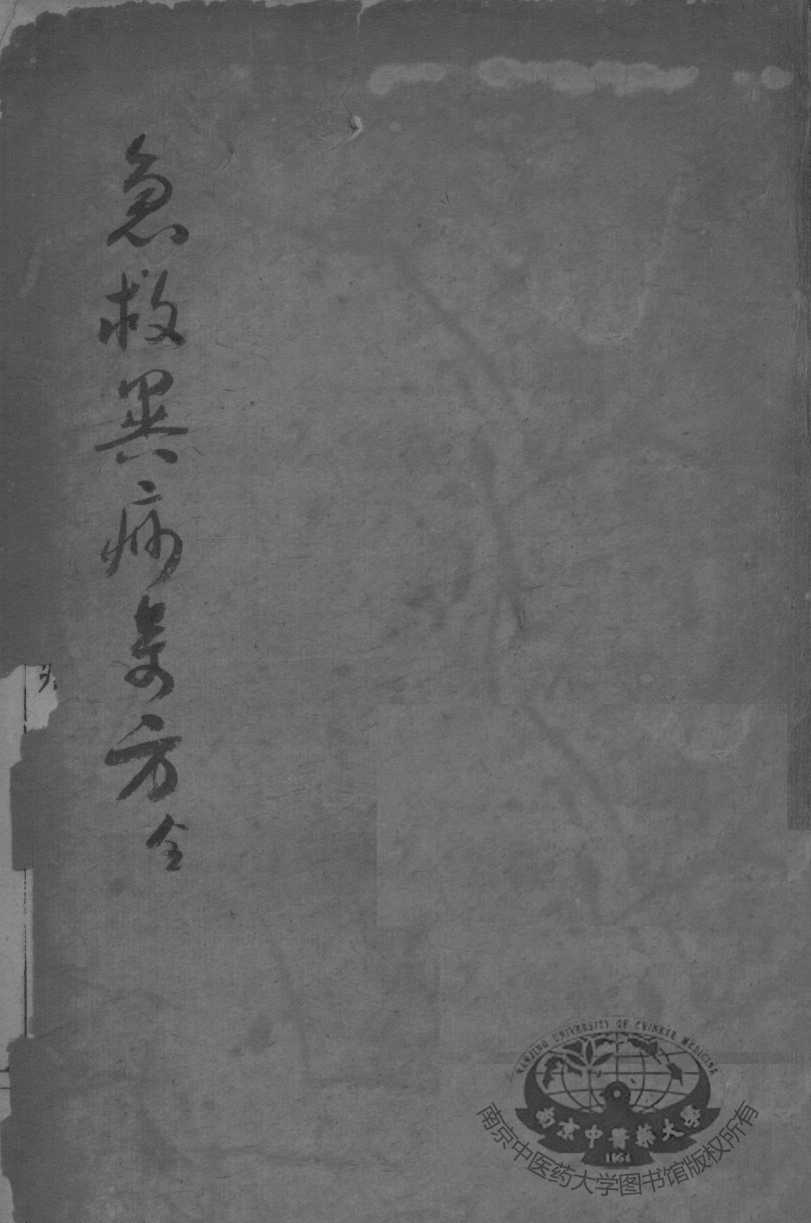 急救異病奇方全
NANJING UNIVERSITY OF CHINESE MEDICINE
南京中醫藥大學
1954
南京中医药大学图书馆版权所有